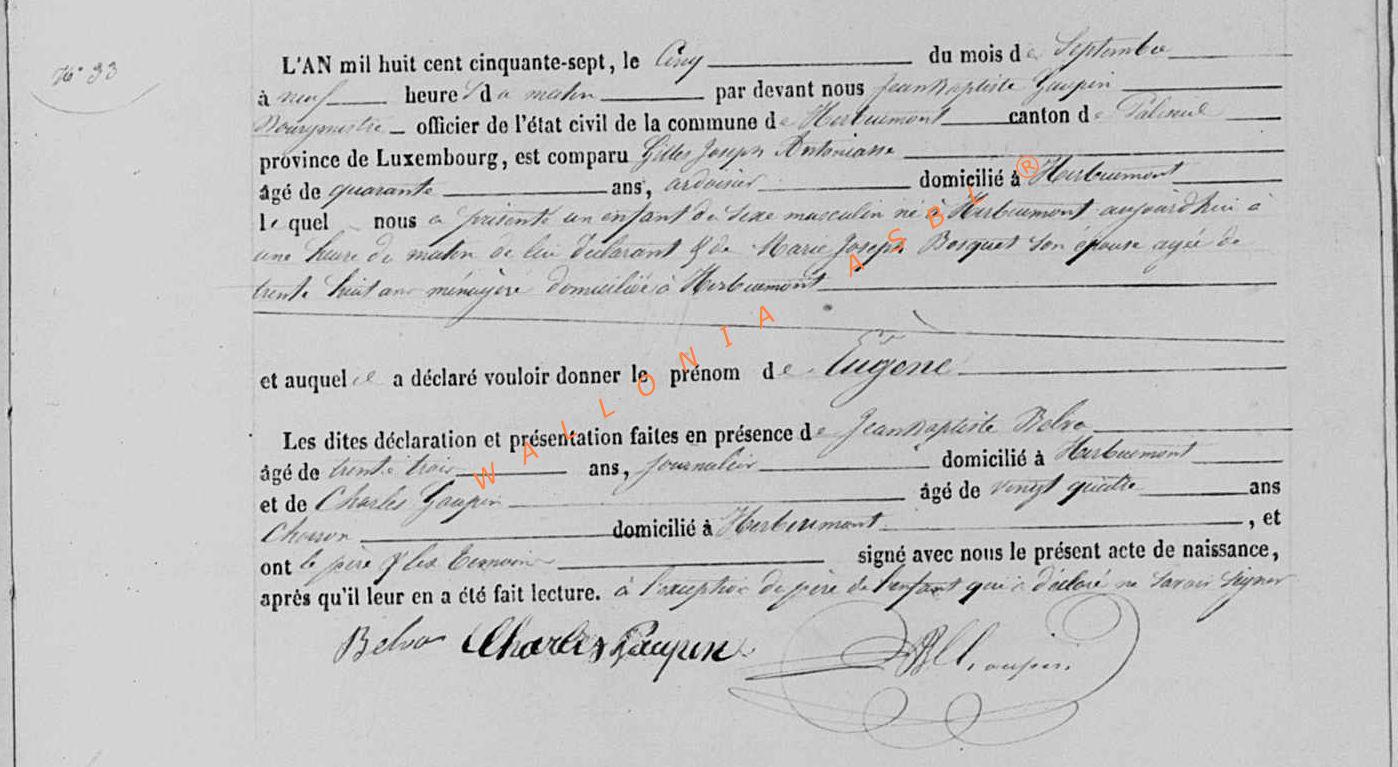 N° 33
L'AN mil huit cent cinquante-sept, le Cinq du mois de Septembre
à neuf heures du matin par devant nous Jean Baptiste Gaupin
Bourgmestre officier de l'état civil de la commune de Herbeumont canton de Paliseul
province de Luxembourg, est comparu Gilles Joseph Antoniasse
âgé de quarante ans, ardoisier domicilié à Herbeumont
lequel nous a présenté un enfant du sexe masculin né à Herbeumont aujourd'hui à
une heure du matin de lui déclarant & de Marie Joseph Bosquet son épouse agée de
trente huit ans ménagère domiciliée à Herbeumont
et auquel il a déclaré vouloir donner le prénom de Eugène
Les dites déclaration et présentation faites en présence de Jean Baptiste Belva
âgé de trente trois ans, journalier domicilié à Herbeumont
et de Charles Gaupin âgé de vingt quatre ans
domicilié à Herbeumont, et
ont le père & les temoins signé avec nous le présent acte de naissance,
après qu'il leur en a été fait lecture. à l'exception du père de l'enfant qui a déclaré ne savoir signer
Belva Charles Gaupin
WALLONIA ASBL ®